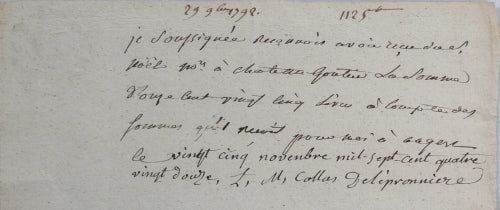 29 9bre 1792. 1125#
je soussignée reconnois avoir reçu du Sr
Noël nre à chateau-Gontier La somme
D'onze cent vingt cinq livres à compte des
sommes qu'il reçoit pour moi à
le vingt cinq novembre mil-sept-cent quatre
vingt douze, L. M. Collas Delépronniere